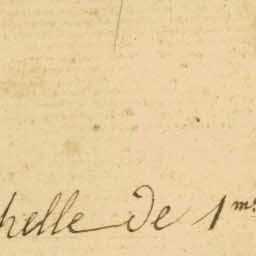 helle de 1 m